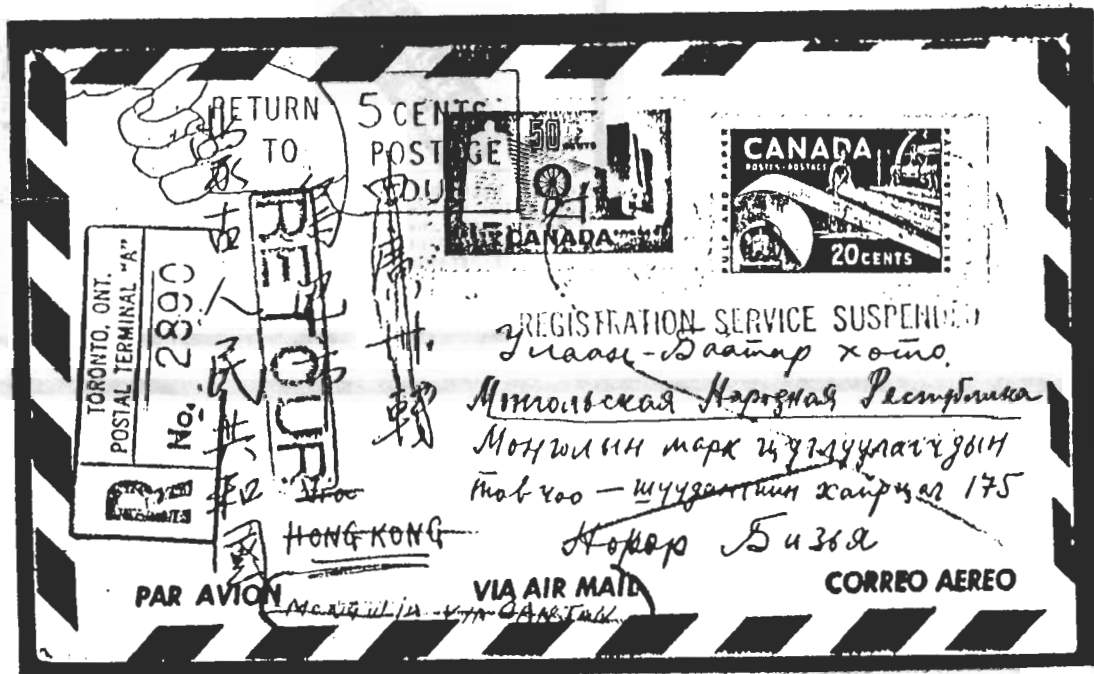 RETURN
TO
5 CENTS
POSTAGE
DUE
50 CENTS
CANADA
CANADA
POSTES-POSTAGE
20 CENTS
TORONTO, ONT.
POSTAL TERMINAL "A"
No. 2890
R
RETOUR
蒙古人民共和國
REGISTRATION SERVICE SUSPENDED
Улаан-Баатар хото
Монгольская Народная Республика
Монголын марк цуглуулагчдын
товчоо — шуудангийн хайрцаг 175
Нөхөр Бизъя
HONG KONG
Mongolia via CANTON
PAR AVION
VIA AIR MAIL
CORREO AEREO